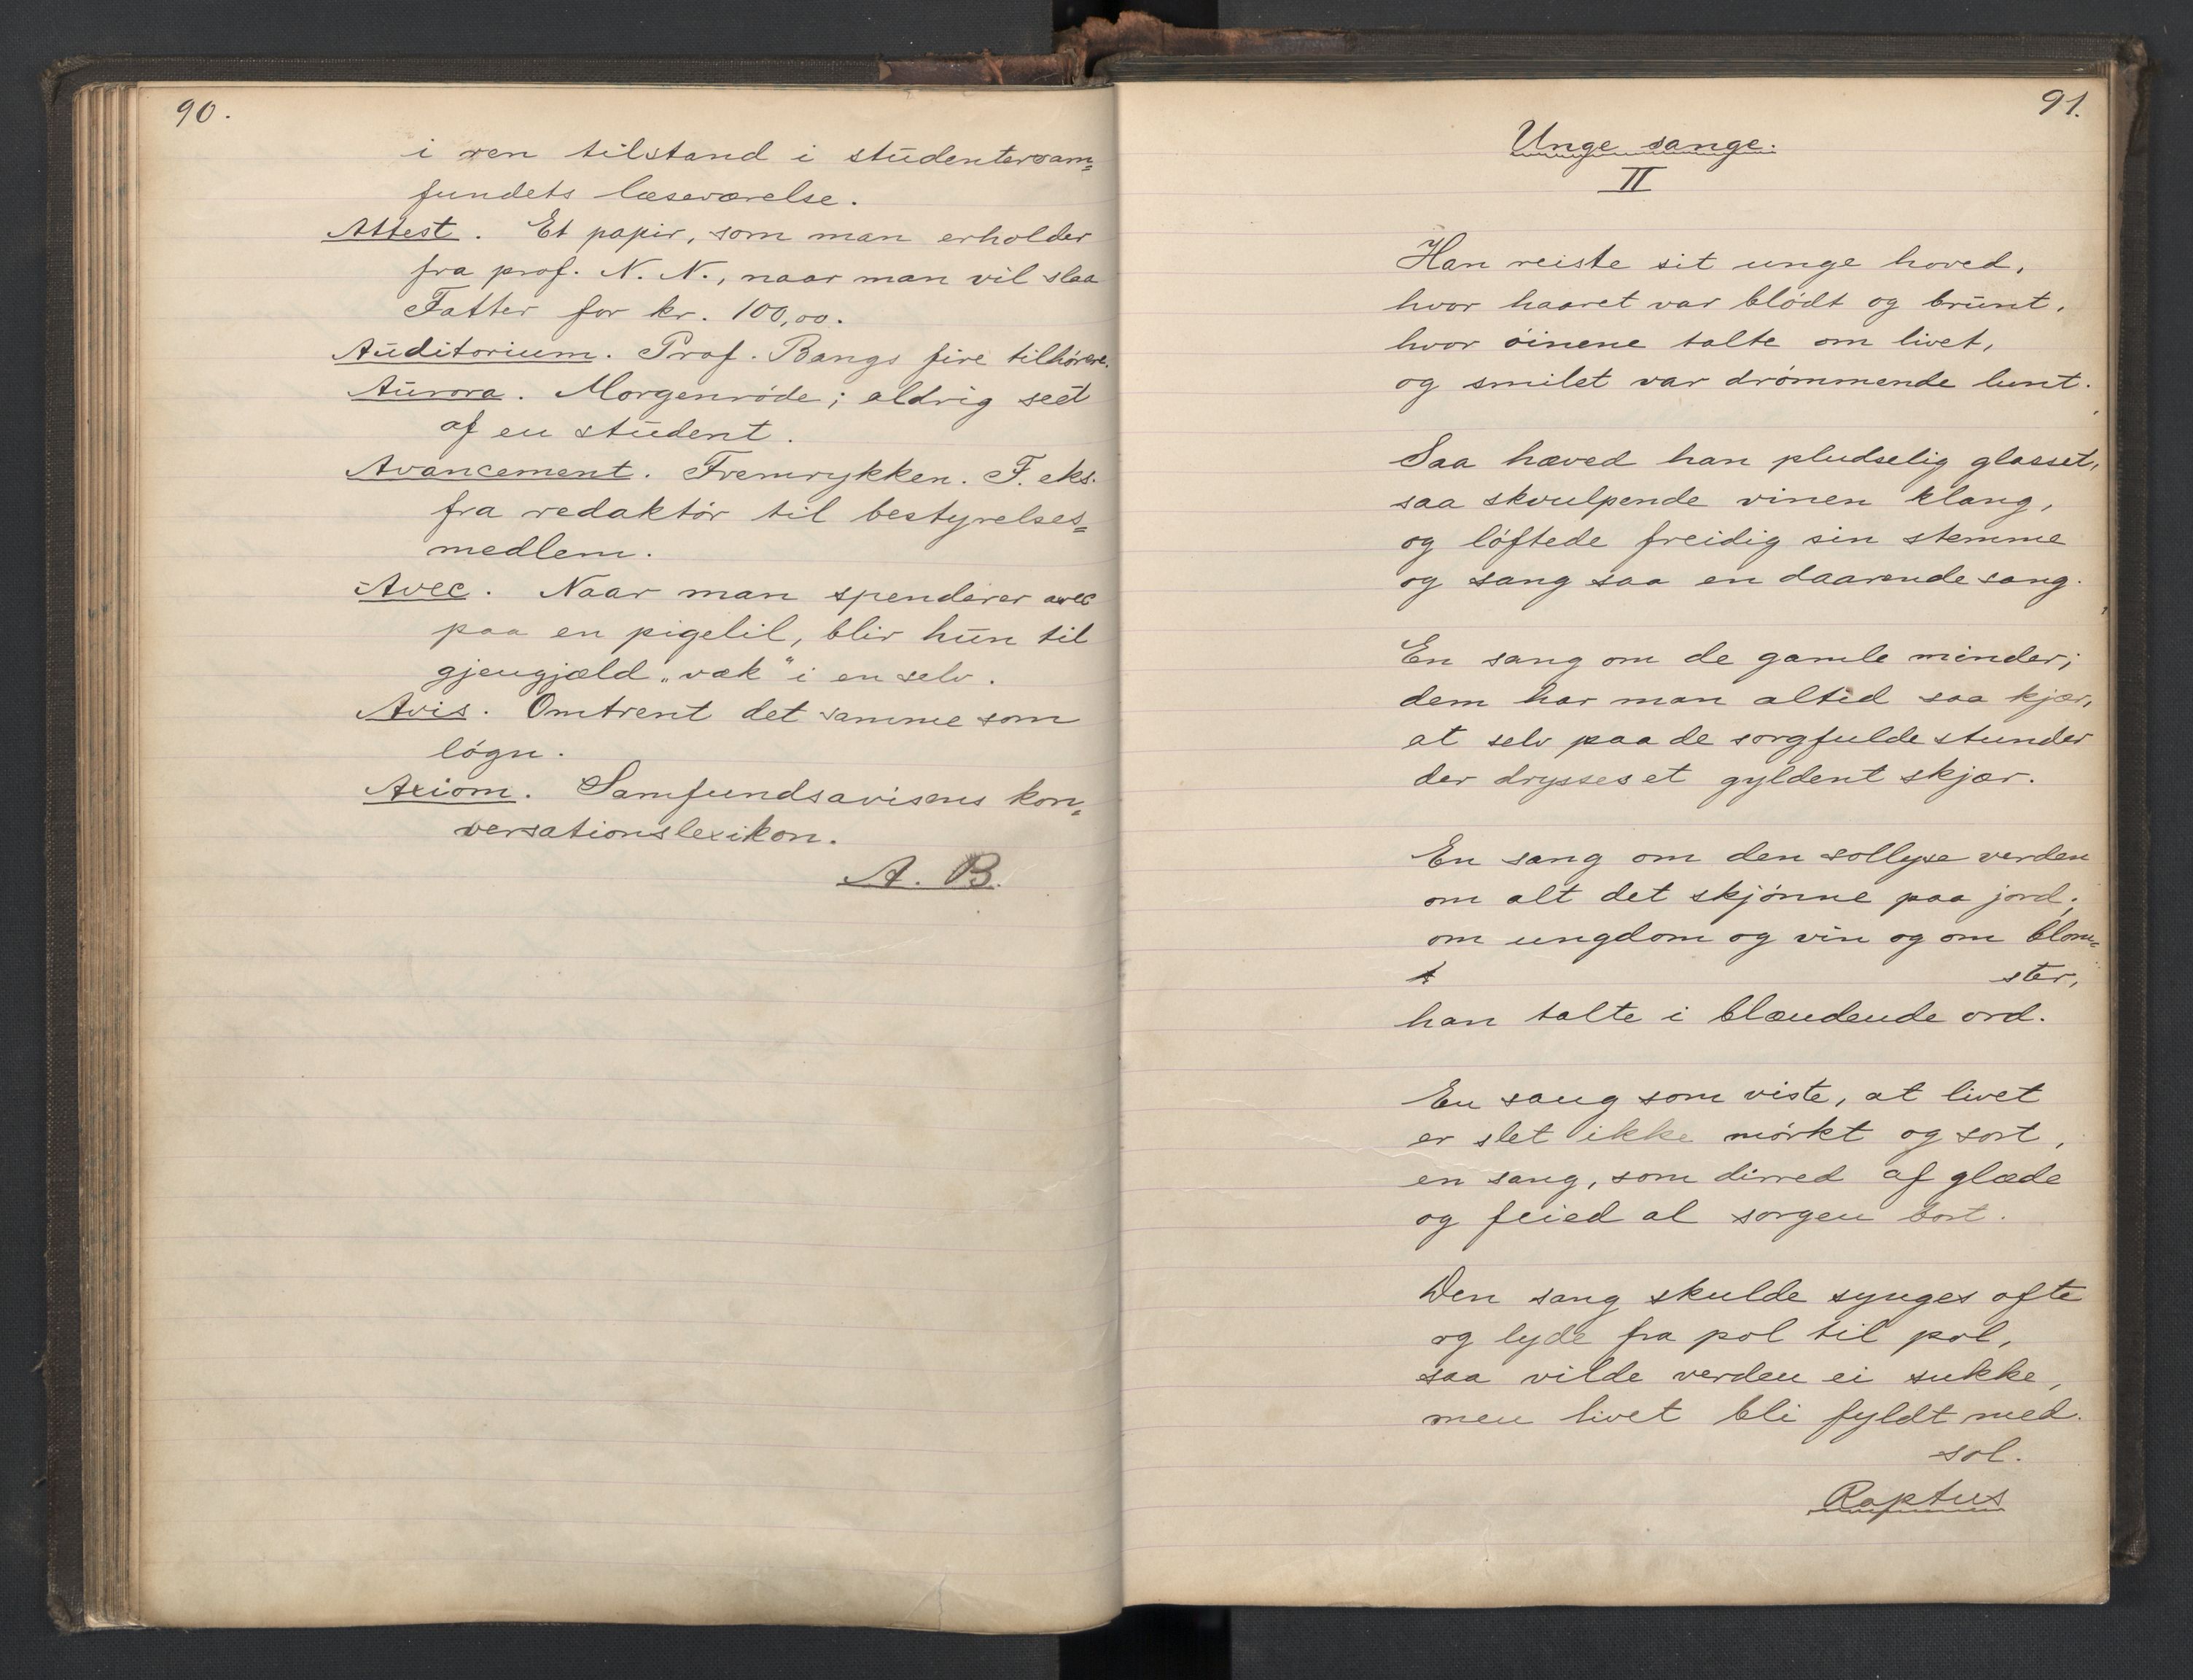 90.
i ren tilstand i studentersam=
fundets læseværelse.
Attest. Et papir, som man erholder
fra prof. N. N., naar man vil slaa
Fatter for kr. 100,00.
Auditorium. Prof. Bangs fire tilhörere.
Aurora. Morgenröde; aldrig seet
af en student.
Avancement. Fremrykken. F. eks.
fra redaktör til bestyrelses=
medlem.
Avec. Naar man spenderer avec
paa en pigelil, blir hun til
gjengjæld „væk“ i en selv.
Avis. Omtrent det samme som
lögn.
Axiom. Samfundsavisens kon=
versationslexikon.
A. B.
91.
Unge sange.
II
Han reiste sit unge hoved,
hvor haaret var blödt og brunt,
hvor öinene talte om livet,
og smilet var drömmende lunt.
Saa hæved han pludselig glasset,
saa skvulpende vinen klang,
og löftede freidig sin stemme
og sang saa en daarende sang.
En sang om de gamle minder;
dem har man altid saa kjær,
at selv paa de sorgfulde stunder
der drysses et gyldent skjær.
En sang om den sollyse verden
om alt det skjönne paa jord;
om ungdom og vin og om blom=
ster,
han talte i blændende ord.
En sang som viste, at livet
er slet ikke mörkt og sort,
en sang, som dirred af glæde
og feied al sorgen bort.
Den sang skulde synges ofte
og lyde fra pol til pol,
saa vilde verden ei sukke,
men livet bli fyldt med
sol.
Raptus